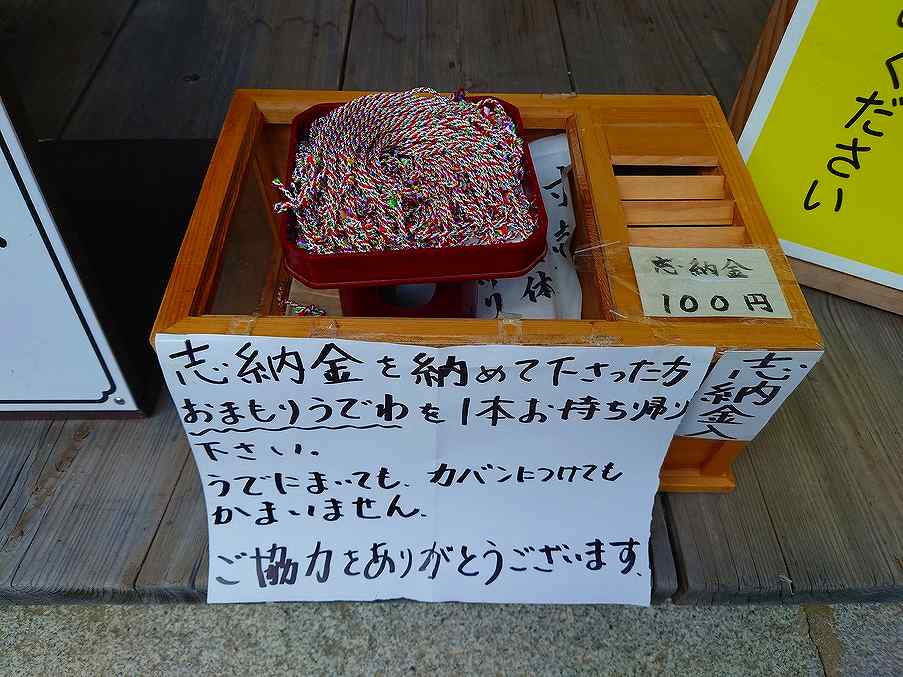 ください
体
志納金
100円
志納金を納めて下さった方
おまもりうでわを1本お持ち帰り
下さい。
うでにまいても、カバンにつけても
かまいません。
ご協力をありがとうございます。
志納金入